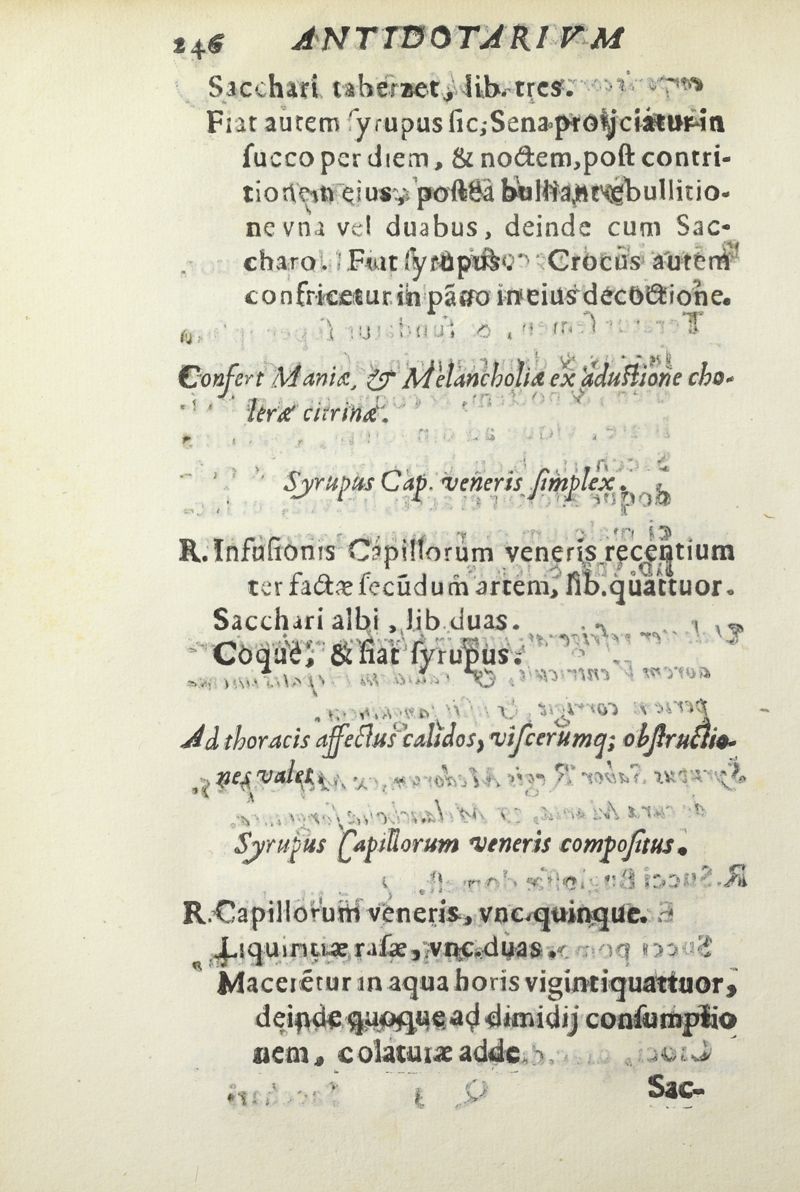 246 ANTIDOTARIVM
Sacchari taberzet, lib. tres.
Fiat autem ſyrupus ſic; Sena proijciatur in
ſucco per diem, & noctem, poſt contri-
tionem eius, poſtea bulliant ebullitio-
ne vna vel duabus, deinde cum Sac-
charo. Fiat ſyrupus. Crocus autem
confricetur in pāno in eius decoctione.
Confert Maniæ, & Melancholiæ ex aduſtione cho-
leræ citrinæ.
Syrupus Cap. veneris ſimplex.
R. Infuſionis Capillorum veneris recentium
ter factæ ſecūdum artem, lib. quattuor.
Sacchari albi, lib. duas.
Coque, & fiat ſyrupus.
Ad thoracis affectus calidos, viſcerumq; obſtructio-
nes valet.
Syrupus Capillorum veneris compoſitus.
R. Capillorum veneris, vnc. quinque.
Liquiritiæ raſæ, vnc. duas.
Macerētur in aqua horis vigintiquattuor,
deinde quoque ad dimidij conſumptio
nem, colaturæ adde
Sac-